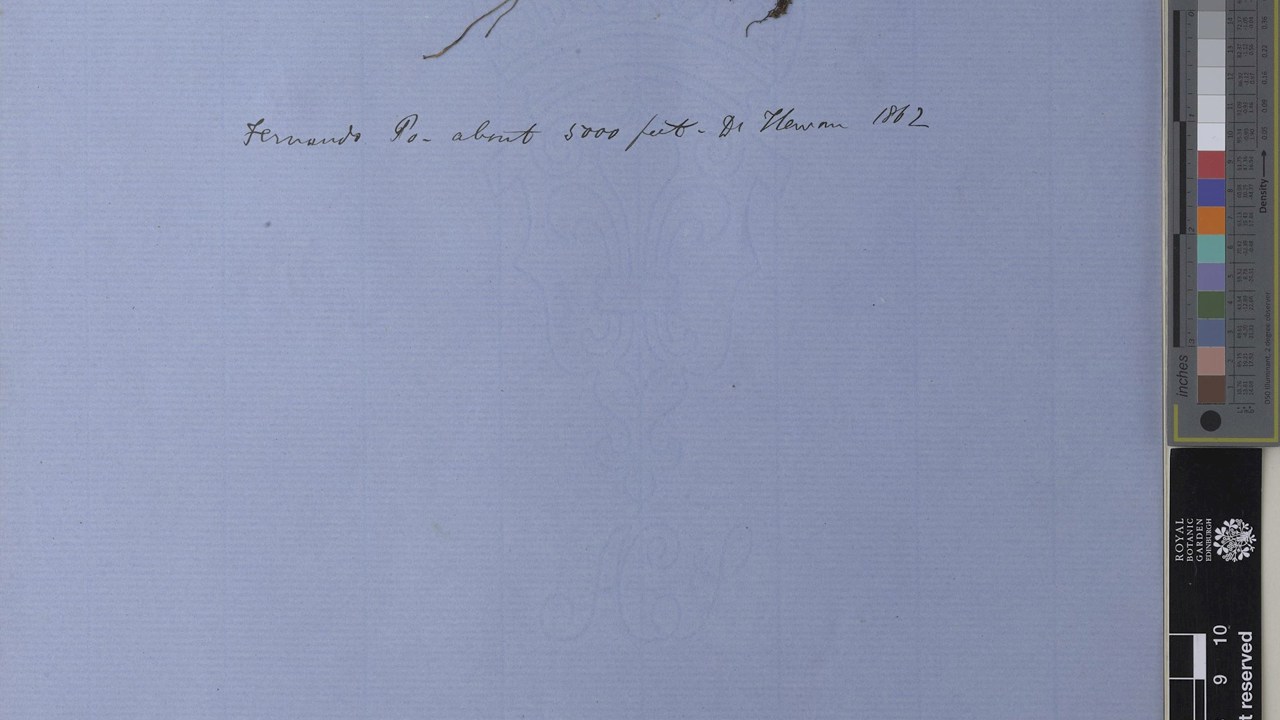 Fernando Po - about 5000 feet - Dr Hewan 1862
inches
Density
D50 Illuminant, 2 degree observer
ROYAL
BOTANIC
GARDEN
EDINBURGH
9 10
t reserved